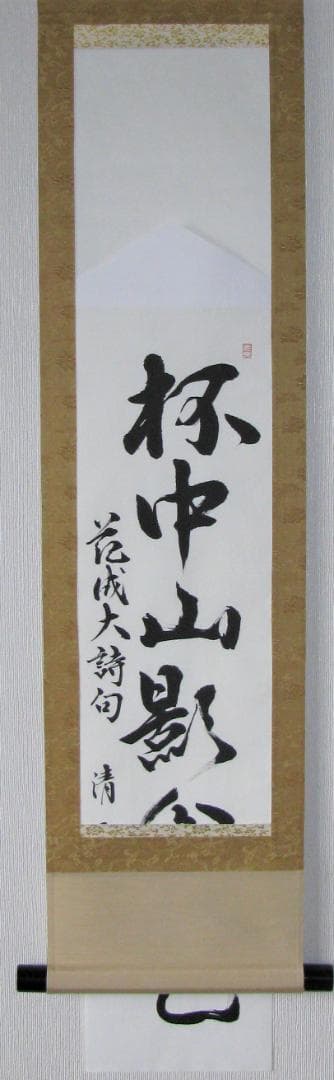 杯中山影分
范成大詩句 清